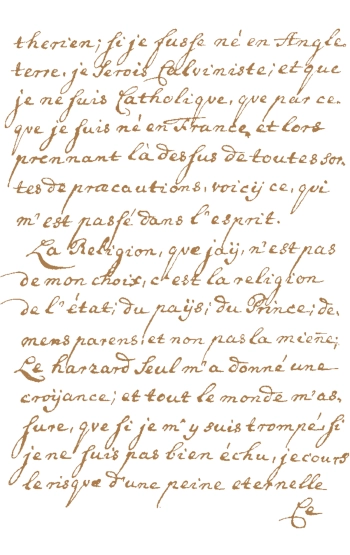 therien; si je fusse né en Angle-
terre, je serois Calviniste; et que
je ne suis Catholique, que par ce-
que je suis né en France, et lors
prennant là dessus de toutes sor-
tes de præcautions, voicij ce, qui
m'est passé dans l'esprit.
La Religion, que jaÿ, n'est pas
de mon choix, c'est la religion
de l'état; du paÿs; du Prince; de
mens parens, et non pas la mieñe;
Le harzard seul m'a donné une
croÿance; et tout le monde m'as-
sure, que si je m'y suis trompé, si
je ne suis pas bien échu, je cours
le risque d'une peine eternelle
Ce